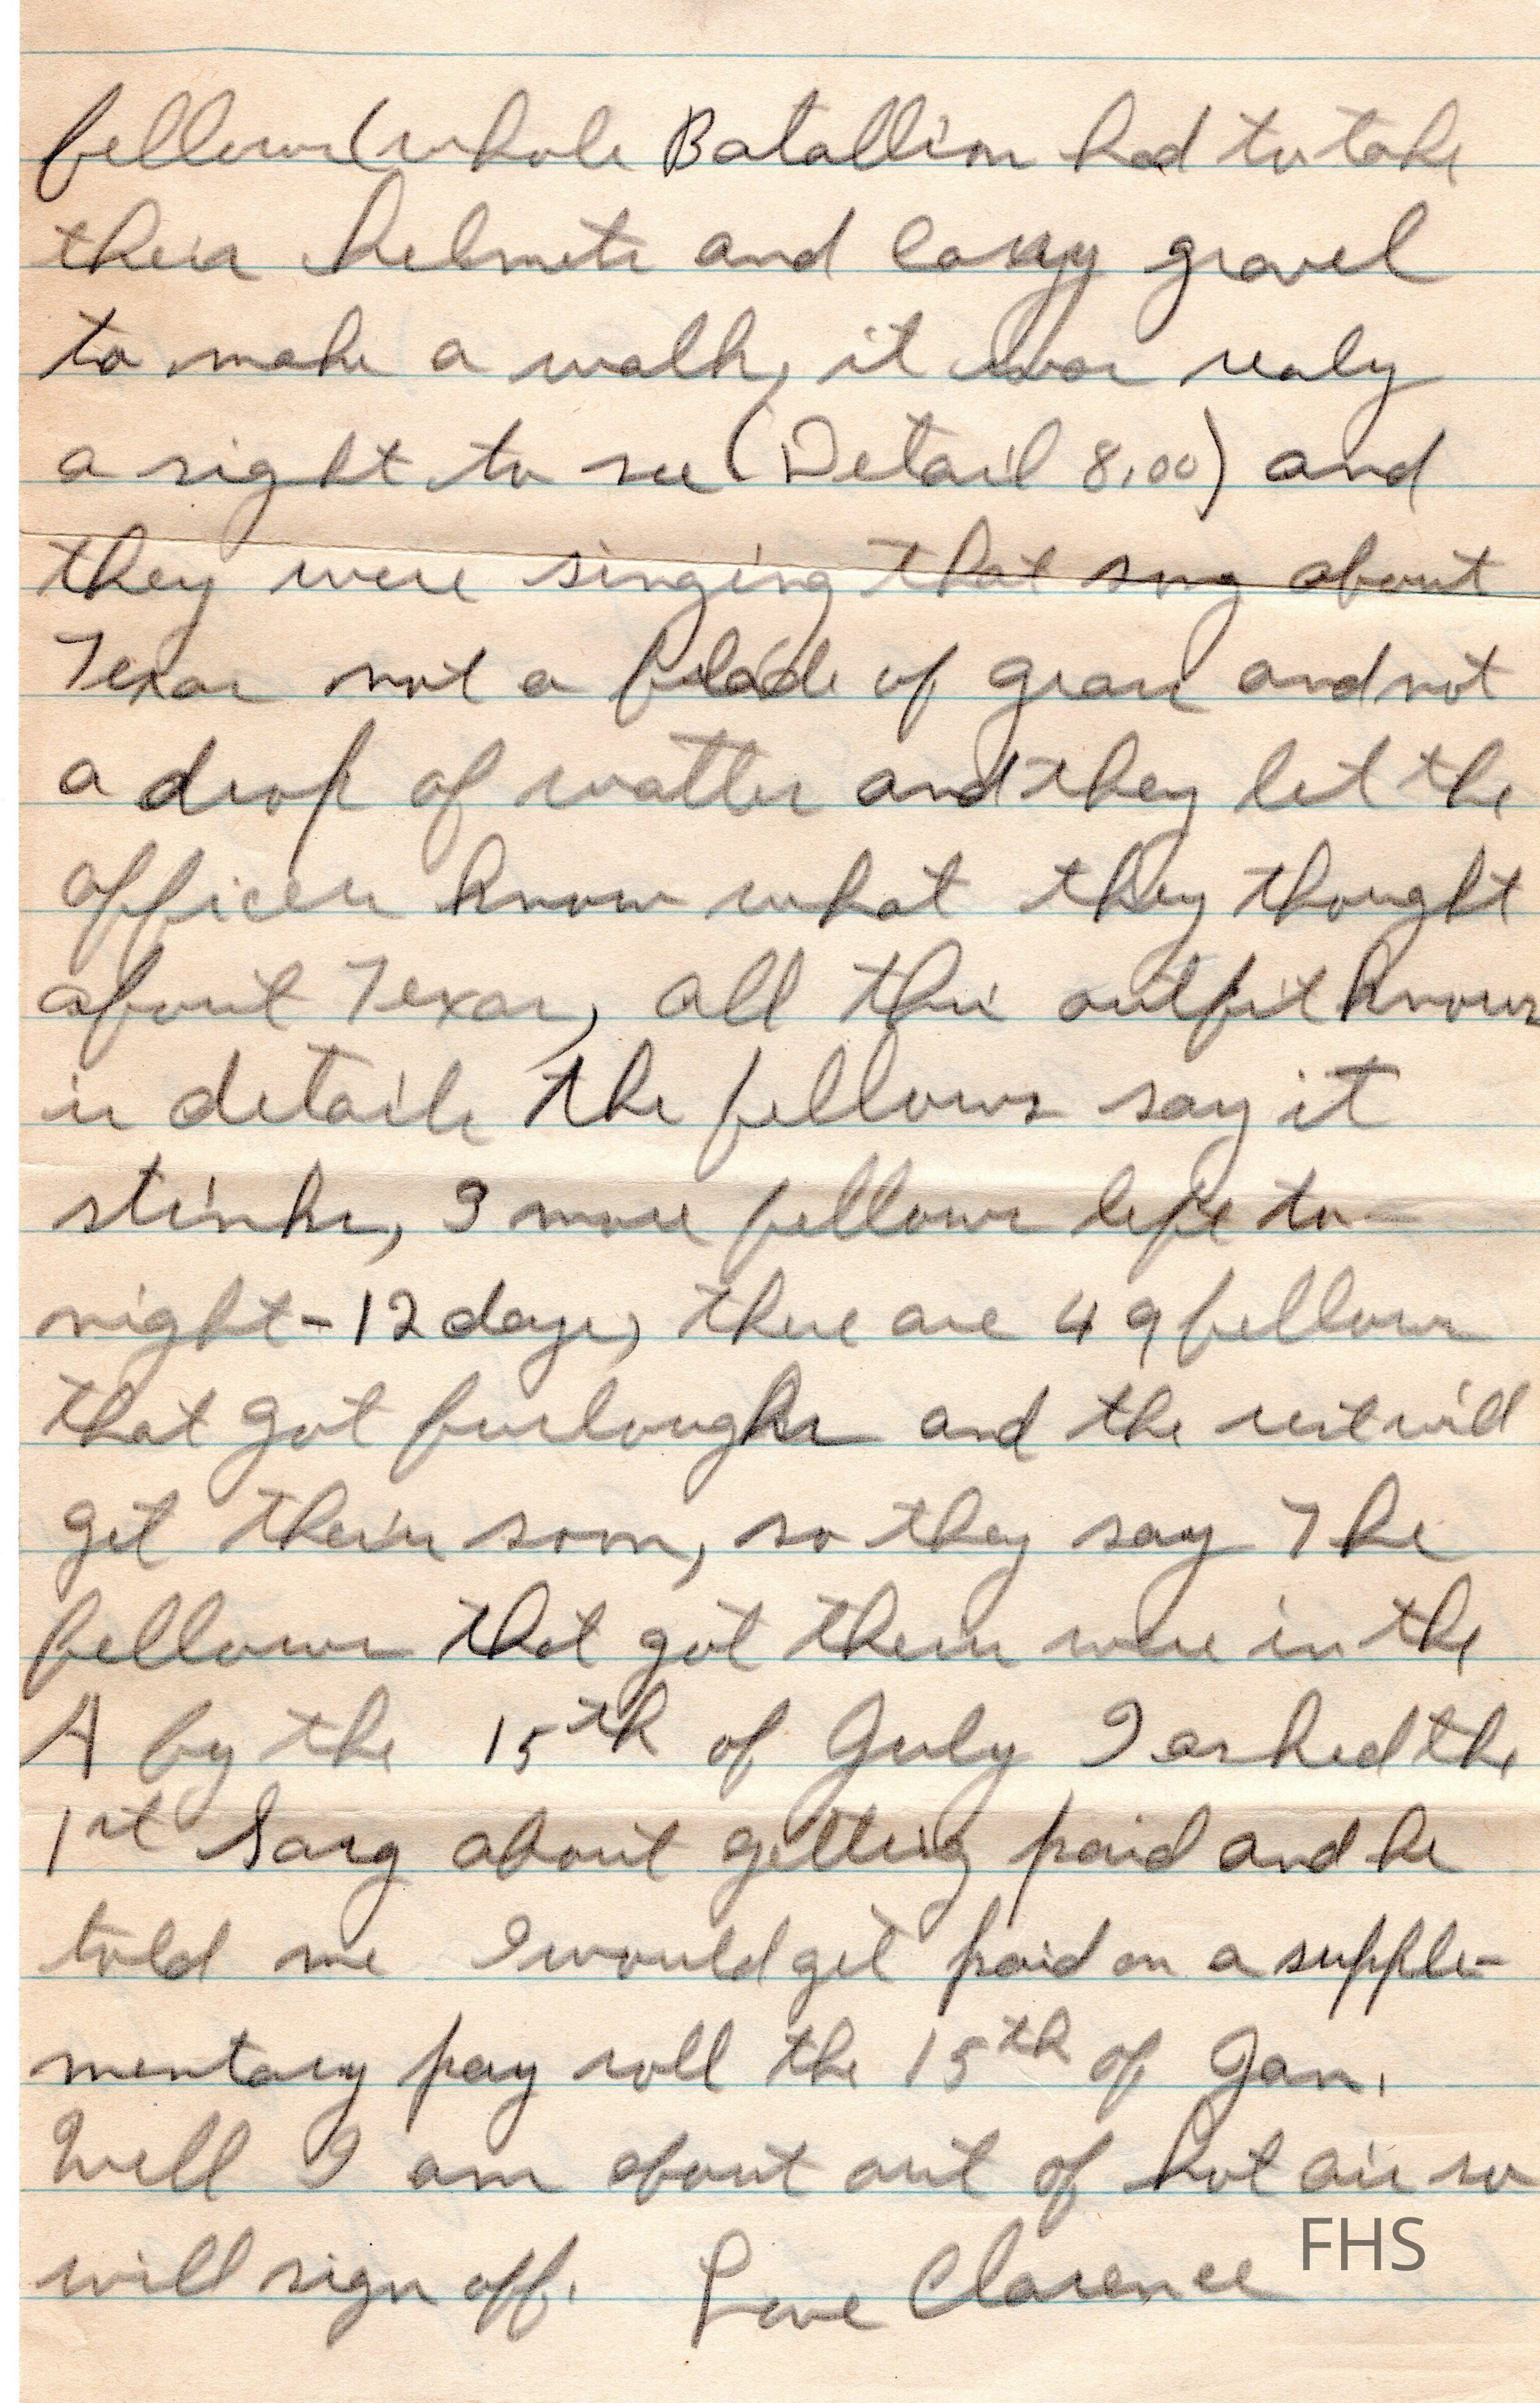 fellows (whole Batallion had to take
their helmets and cary gravel
to make a walk, it was realy
a sight to see (Detail 8.00) and
they were singing that song about
Texas not a blade of grass and not
a drop of watter and they let the
officers know what they thought
about Texas, all this outfit knows
is details the fellows say it
stinks, 3 more fellows left to-
night - 12 days, there are 49 fellows
that got furloughs and the rest will
get theirs soon, so they say The
fellows that got theirs were in the
A by the 15th of July I asked the
1st Sarg about getting paid and he
told me I would get paid on a supple-
mentary pay roll the 15th of Jan.
Well I am about out of hot air so
will sign off. Love Clarence
FHS